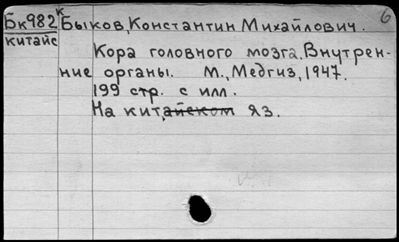 Бк982 к Быков, Константин Михайлович. 6
китайс
Кора головного мозга. Внутрен-
ние органы. М., Медгиз, 1947.
199 стр. с илл.
На китайском яз.